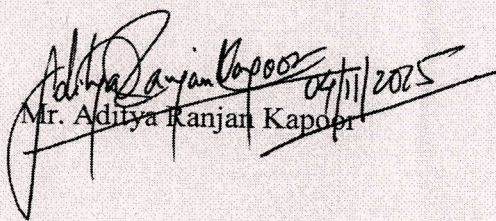 Aditya Ranjan Kapoor 04/11/2025
Mr. Aditya Ranjan Kapoor